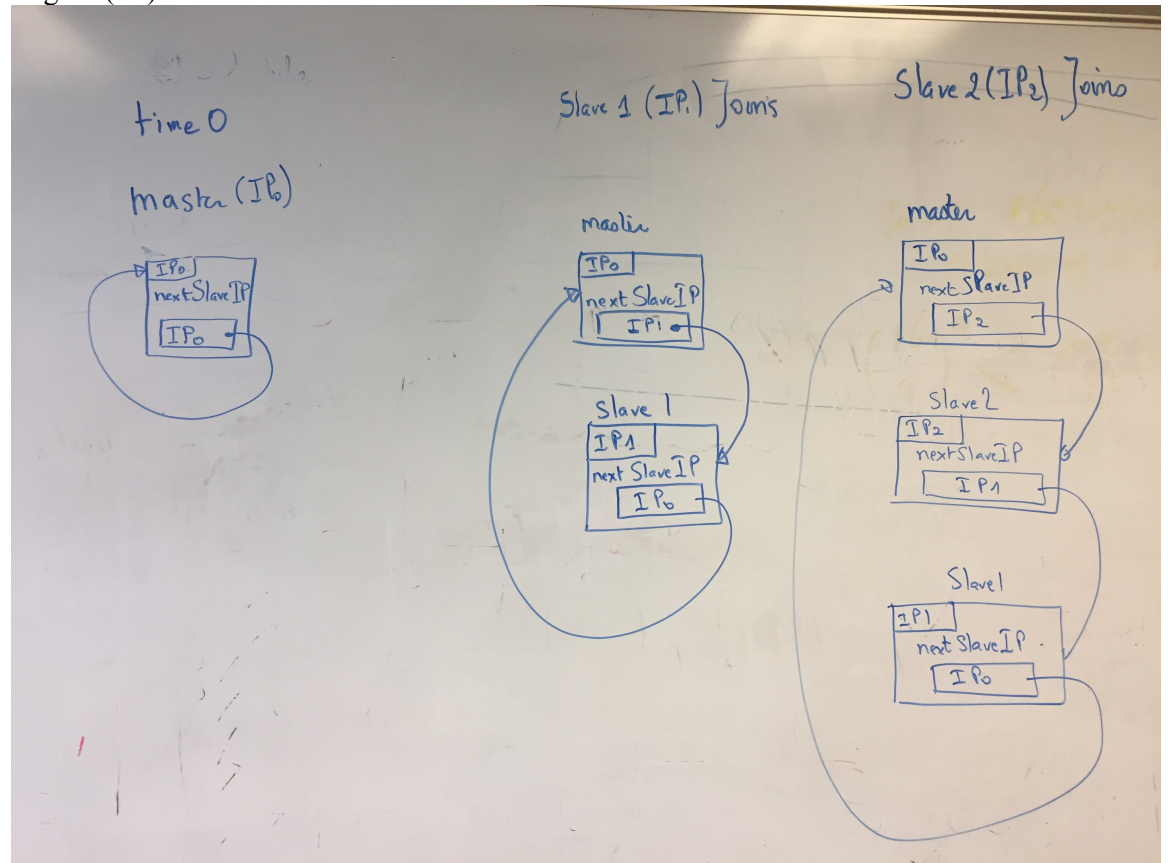 time 0
master (IP0)
IP0
nextSlaveIP
IP0
Slave 1 (IP1) Joins
master
IP0
next SlaveIP
IP1
Slave 1
IP1
next SlaveIP
IP0
Slave 2 (IP2) Joins
master
IP0
next SlaveIP
IP2
Slave2
IP2
nextSlaveIP
IP1
Slave1
IP1
next SlaveIP
IP0